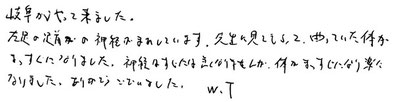 岐阜からやって来ました。
左足の足首からの神経がまれています。先生に見てもらって、曲っていた体が
まっすぐになりました。神経はすぐには良くなりませんが、体がまっすぐになり楽に
なりました。ありがとうございました。 W.T